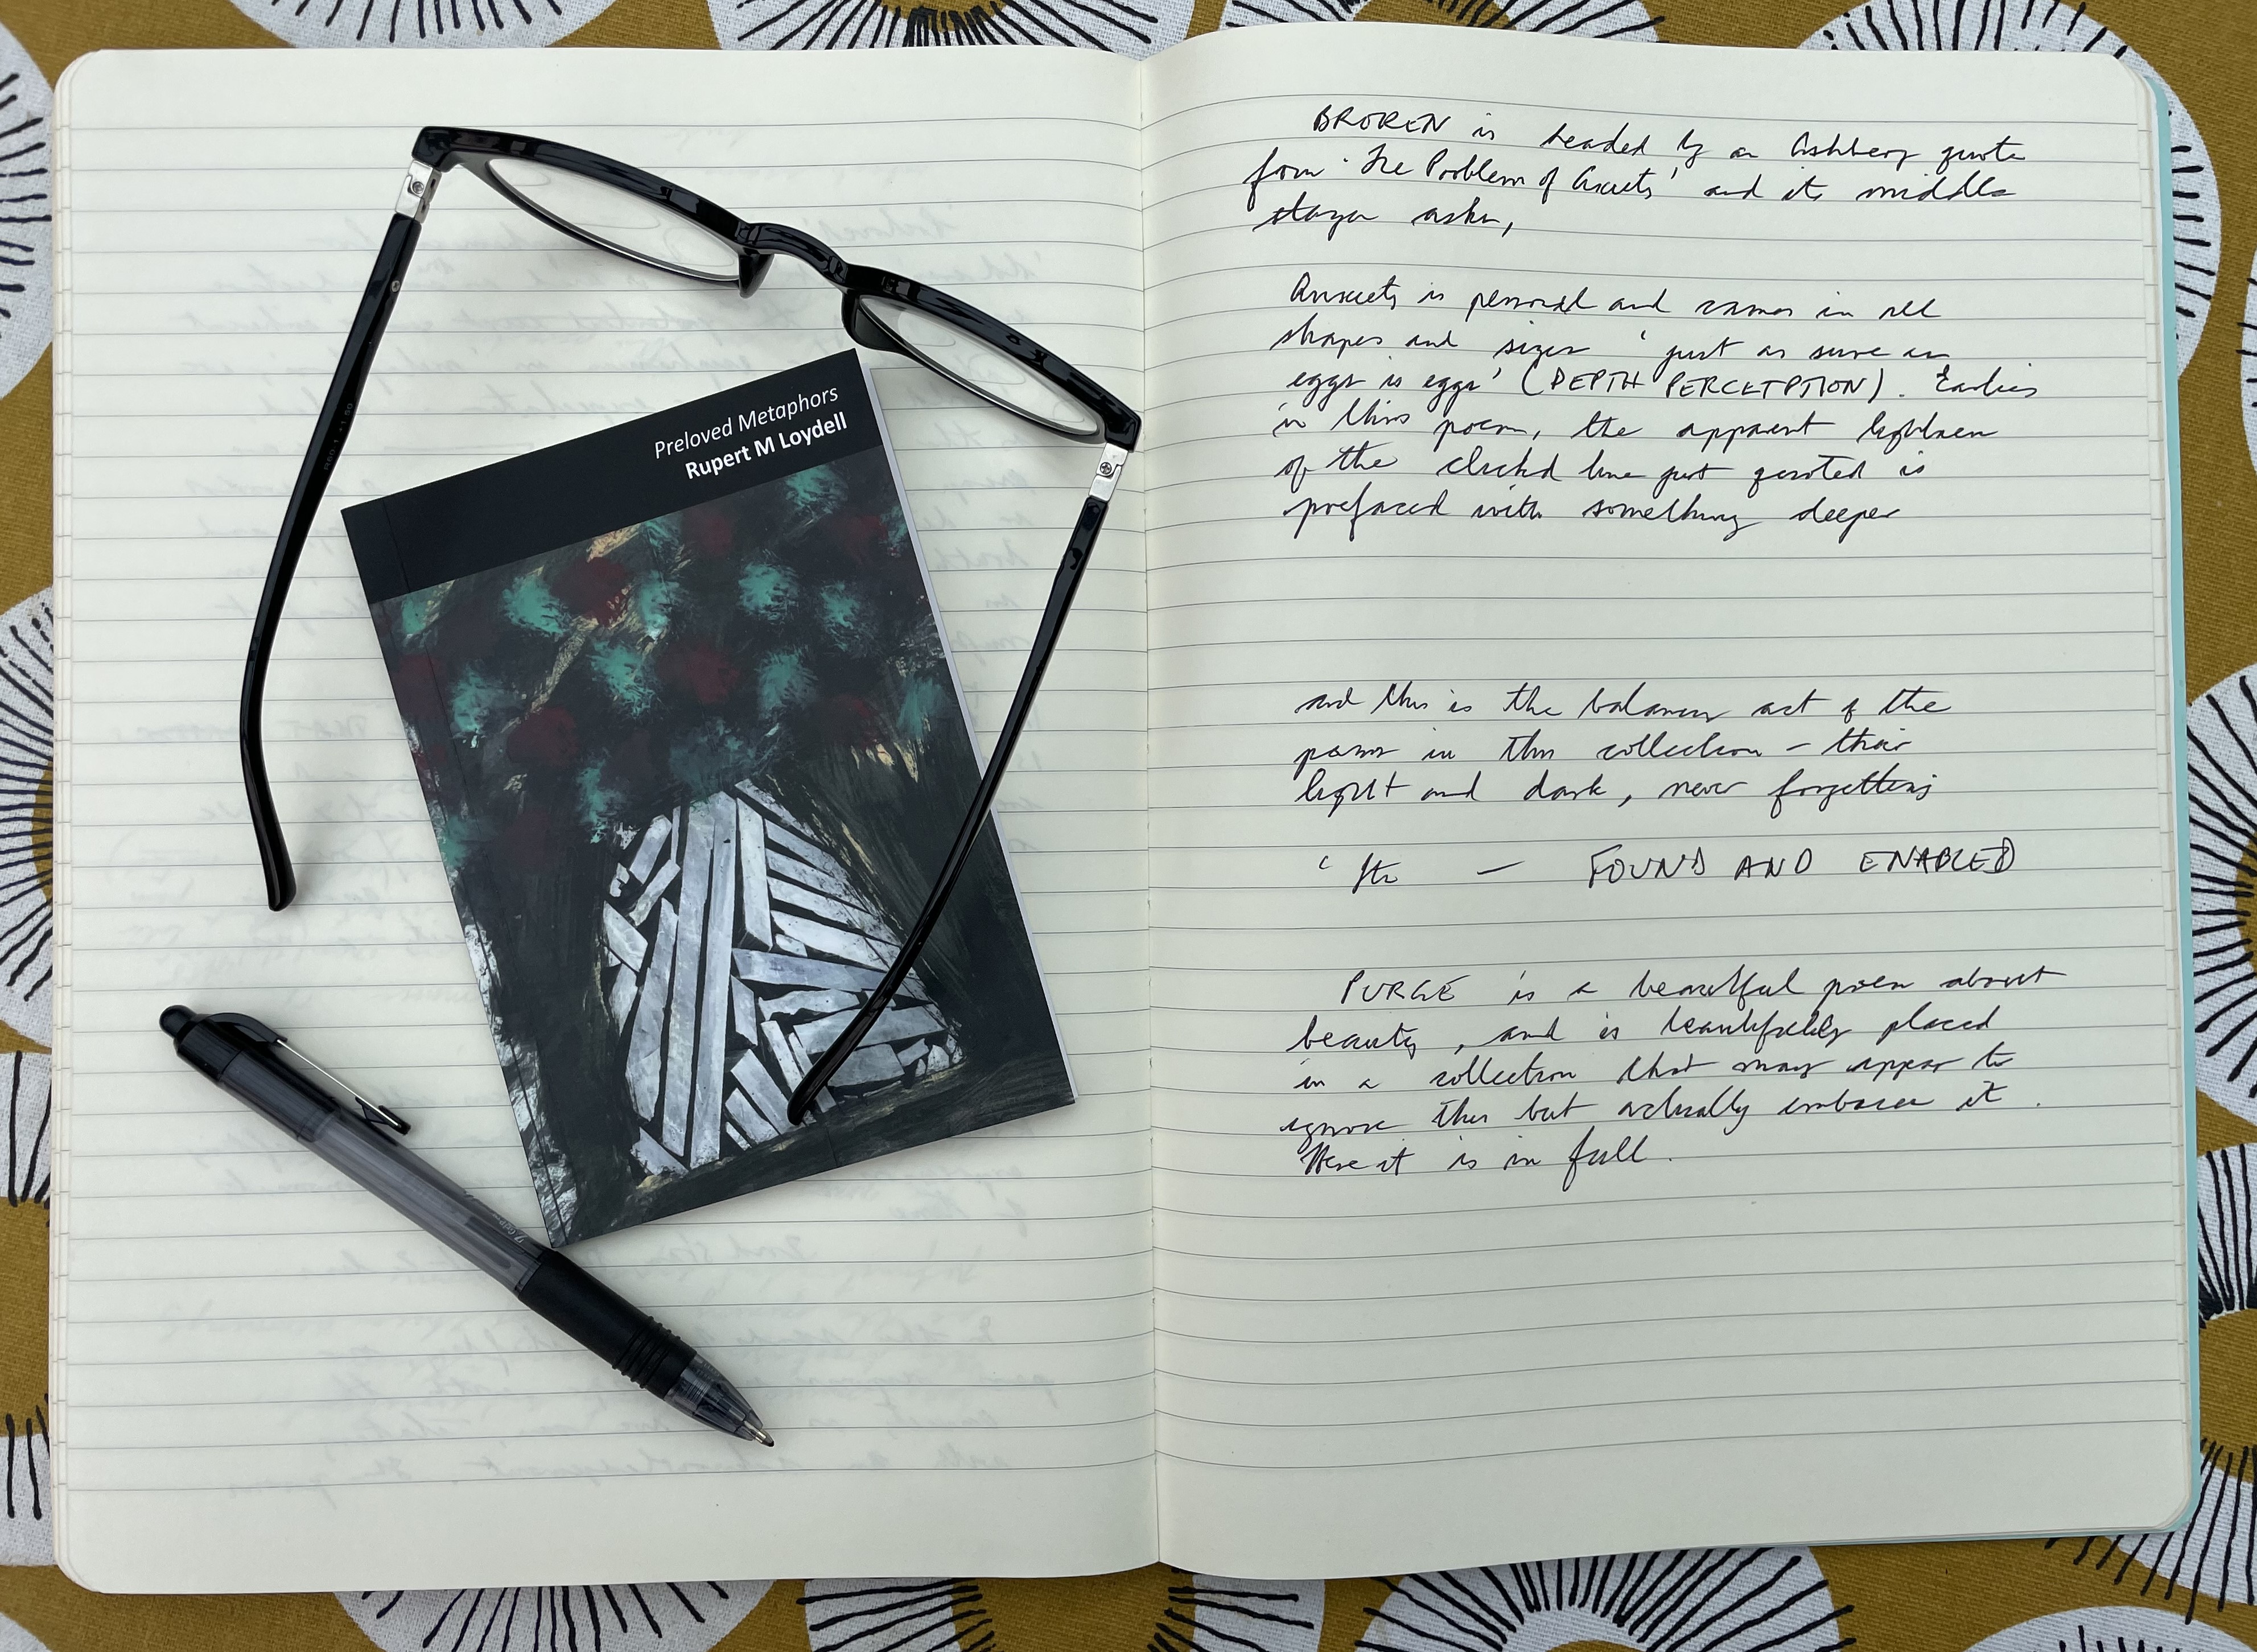 Preloved Metaphors
Rupert M Loydell
BROKEN is headed by an Ashbery quote
from 'The Problem of Anxiety' and its middle
stanza asks,
Anxiety is personal and comes in all
shapes and sizes 'just as sure as
eggs is eggs' (DEPTH PERCEPTION). Earlier
in this poem, the apparent lightness
of the clichéd line just quoted is
prefaced with something deeper
and this is the balancing act of the
poems in this collection – their
light and dark, never forgetting
— FOUND AND ENABLED
PURGE is a beautiful poem about
beauty, and is beautifully placed
in a collection that may appear to
ignore this but actually embraces it.
Here it is in full.